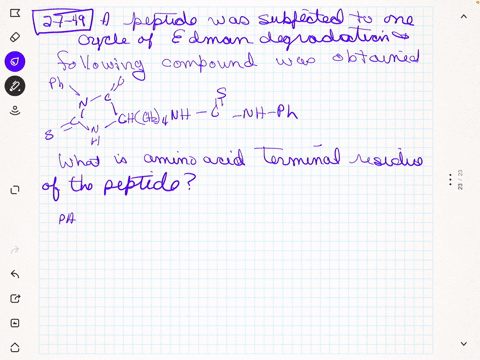 27-49 A peptide was subjected to one
cycle of Edman degradation
following compound was obtained
Ph
O
N - C
S
S = C
N
H
CH(CH₂)₄NH - C - NH-Ph
What is amino acid terminal residue
of the peptide?
PA
23 / 23